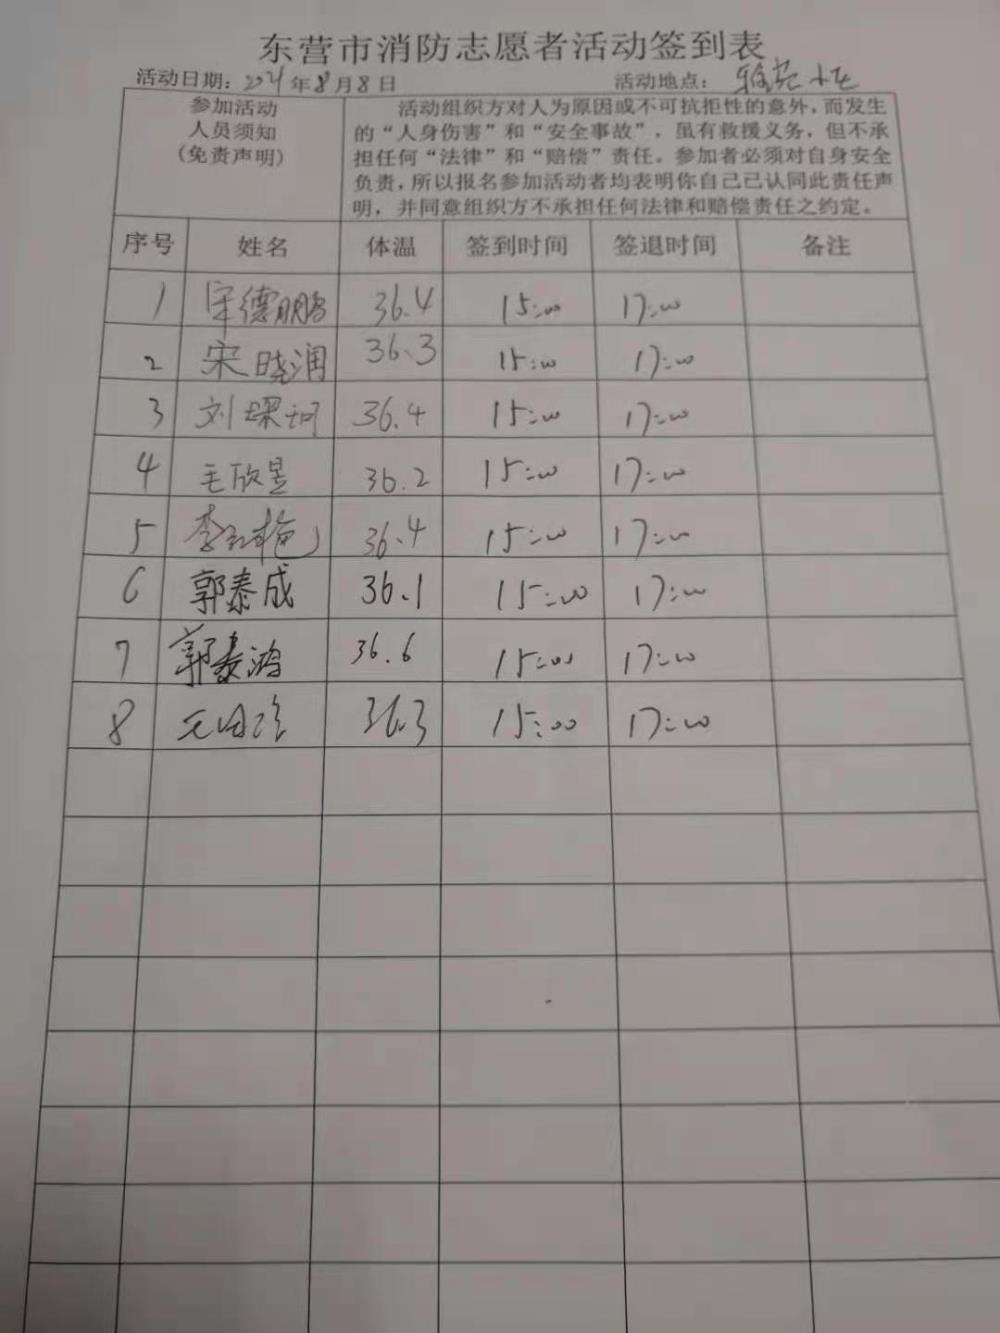 东营市消防志愿者活动签到表
活动日期：2021年8月8日 活动地点：
参加活动
人员须知
（免责声明）
活动组织方对人为原因或不可抗拒性的意外，而发生
的“人身伤害”和“安全事故”，虽有救援义务，但不承
担任何“法律”和“赔偿”责任。参加者必须对自身安全
负责，所以报名参加活动者均表明你自己已认同此责任声
明，并同意组织方不承担任何法律和赔偿责任之约定。
序号 姓名 体温 签到时间 签退时间 备注
1 宋德鹏 36.4 15:00 17:00
2 宋晓润 36.3 15:00 17:00
3 刘琛珂 36.4 15:00 17:00
4 毛欣昱 36.2 15:00 17:00
5 李 36.4 15:00 17:00
6 郭泰成 36.1 15:00 17:00
7 郭泰鸿 36.6 15:00 17:00
8 36.3 15:00 17:00